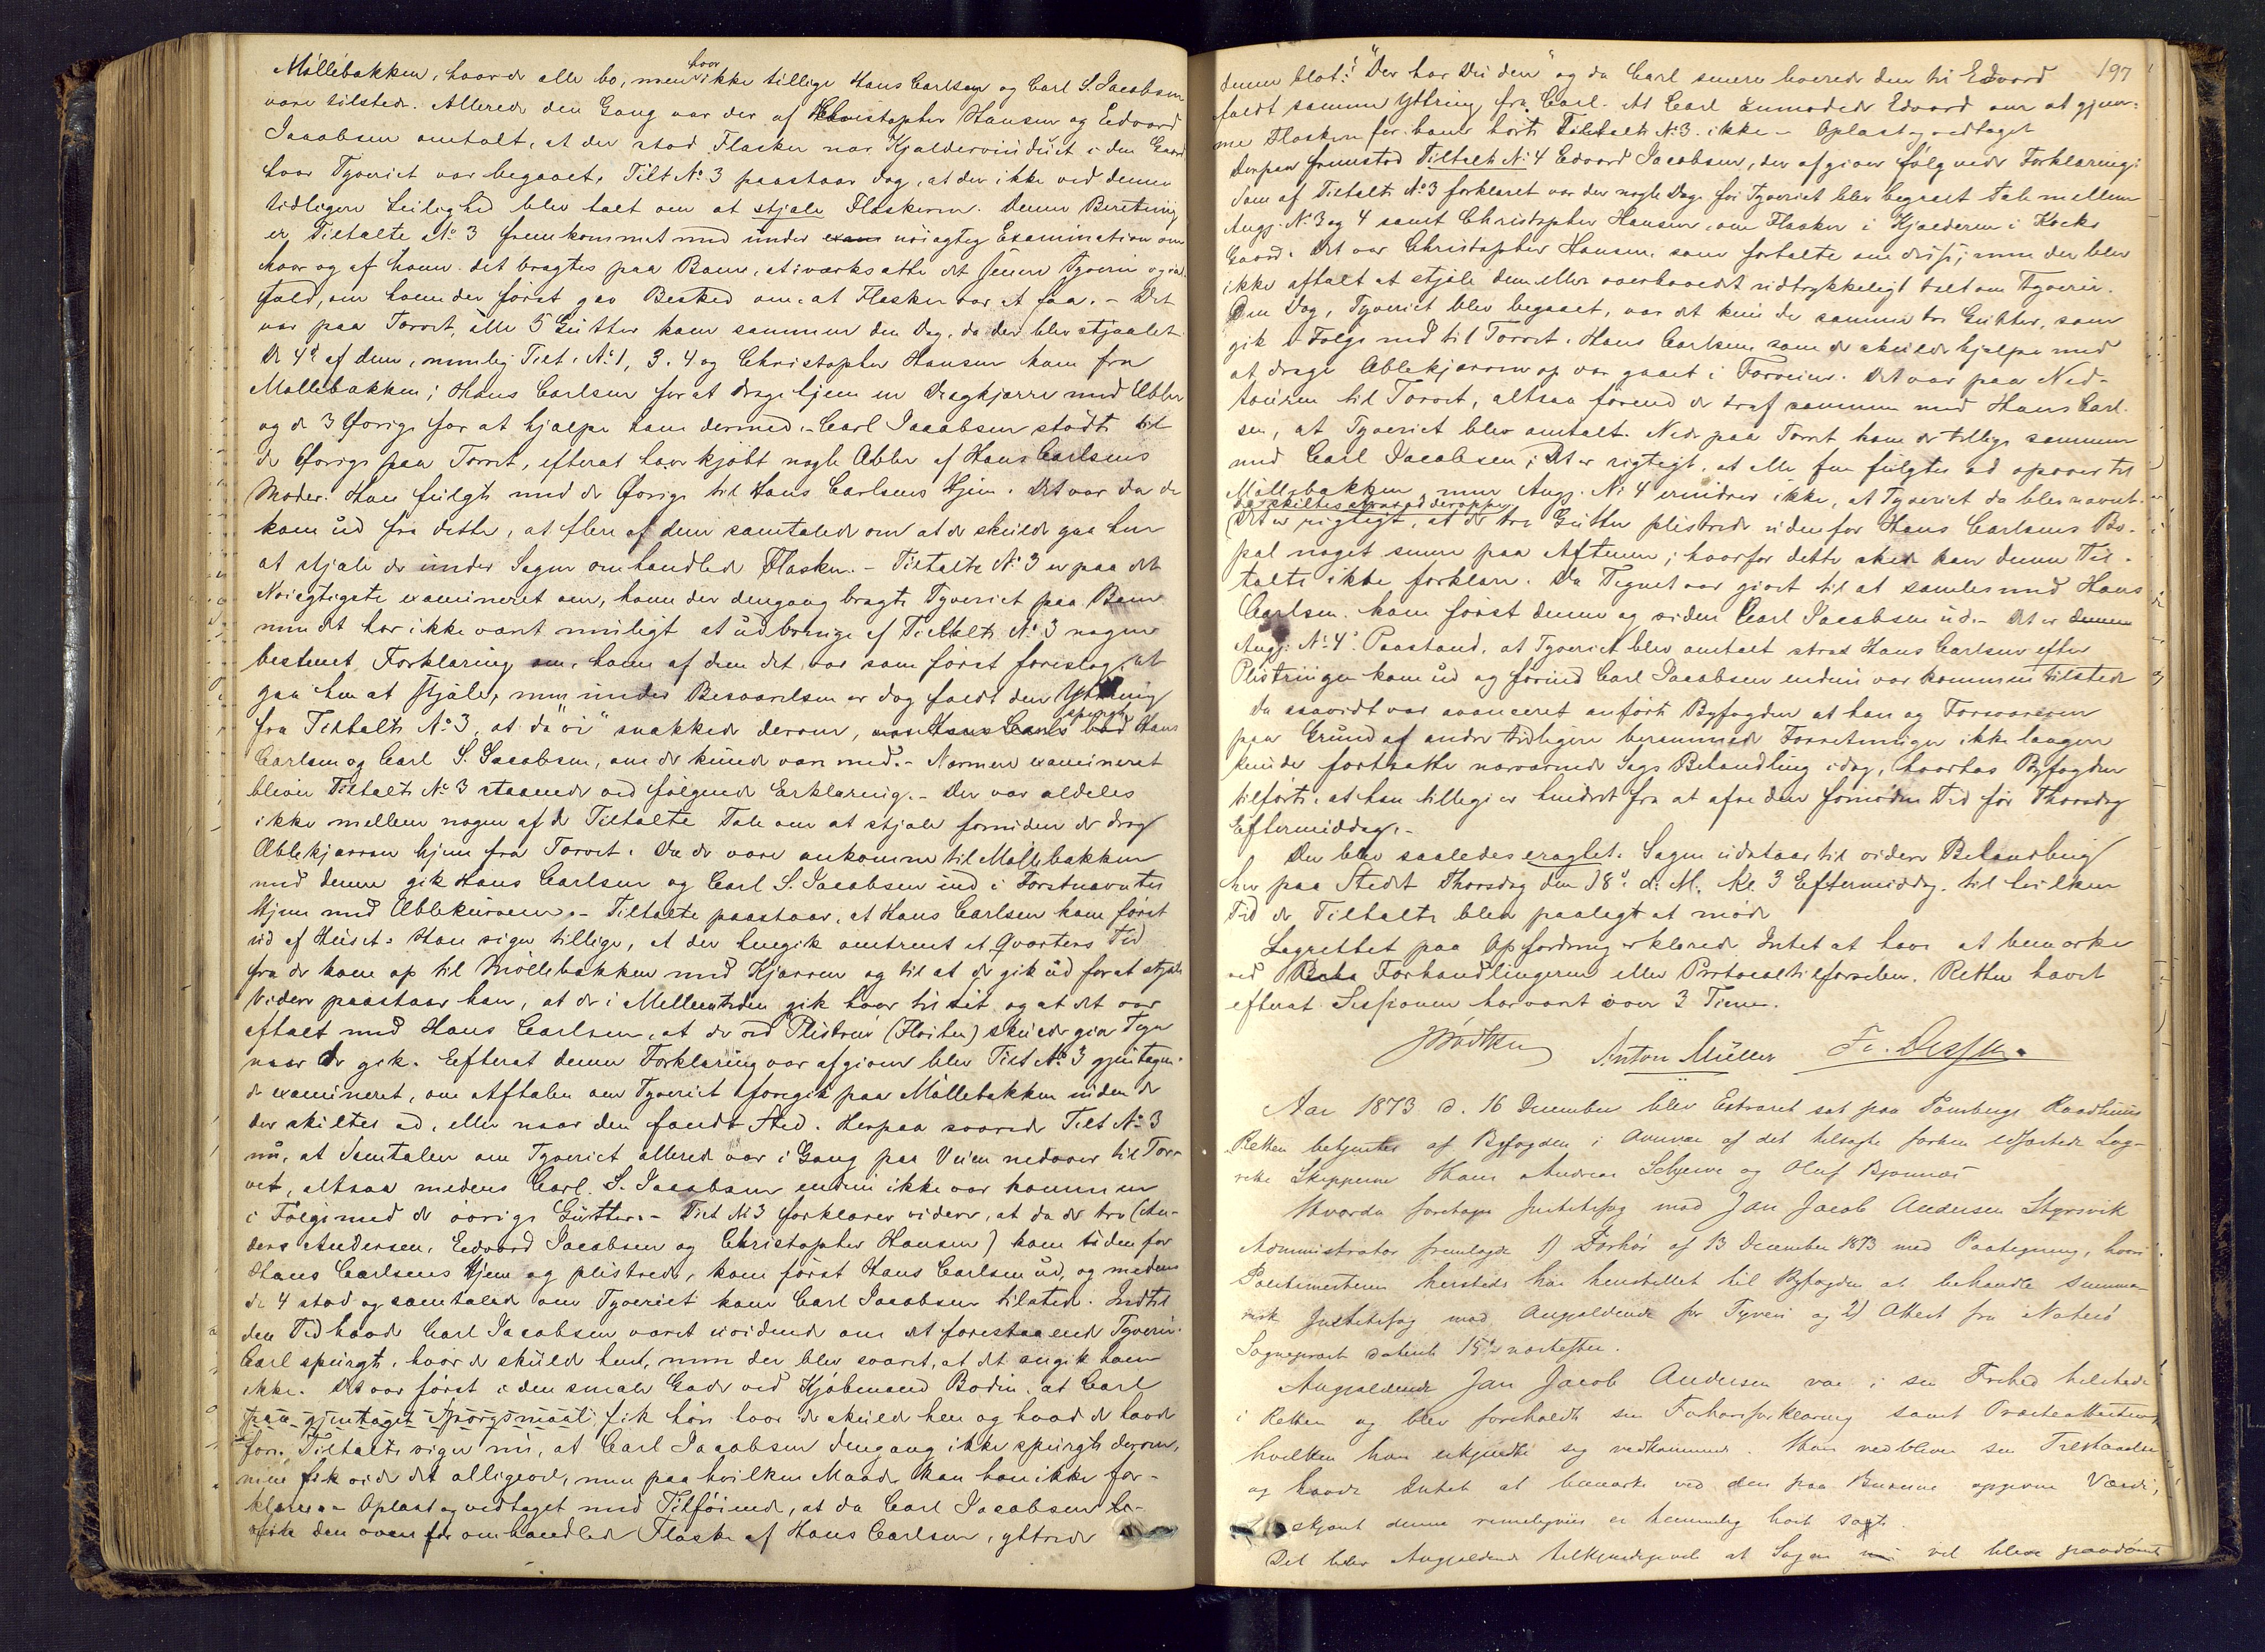 Möllebakken, hvor de alle bo, men hvor ikke tillige Hans Carlsen og Carl S. Jacobsen
vare tilstede. Allerede den Gang var der af Christopher Hansen og Edvard
Jacobsen omtalt, at der stod Flasker nær Kjældervinduet i den Gaard
hvor Tyveriet var begaaet. Tilt No 3 paastaar dog, at der ikke ved denne
tidligere Leilighed blev talt om at stjæle Flaskerne. Denne Beretning
er Tiltalte No 3 fremkommet med under exam nöiagtig Examination om
hvor og af hvem det bragtes paa Bane, at iværksætte det senere Tyveri og
fald, om hvem der först gav Besked om at Flasker var at faa. - Det
var paa Torvet, alle 5 Gutter kom sammen den Dag, da der blev stjaalet
De 4 af dem, nemlig Tilt. No 1, 3. 4 og Christopher Hansen kom fra
Möllebakken; Hans Carlsen for at drage hjem en Dragkjærre med Æbler
og de 3 Övrige for at hjælpe ham dermed. - Carl Jacobsen stödte til
de Övrige paa Torvet, efterat have kjöbt nogle Æbler af Hans Carlsens
Moder. Han fulgte med de Övrige til Hans Carlsens Hjem. Det var da de
kom ud fra dette, at flere af dem samtalede om at de skulde gaa hen
at stjæle de under Sagen omhandlede Flasker. - Tiltalte No 3 er paa det
Nöiagtigste examineret om, hvem der dengang bragte Tyveriet paa Bane
men det har ikke været muligt at udbringe af Tiltalte No 3 nogen
bestemt Forklaring om, hvem af dem det var som först foreslog, at
gaa hen at stjæle, men under Besvarelsen er dog faldt den Yttring
fra Tiltalte No 3, at da "vi" snakkede derom, spurgte vi Hans
Carlsen og Carl S. Jacobsen, om de kunde være med. - Nærmere examineret
bliver Tiltalte No 3 staaende ved fölgende Erklæring. - Der var aldeles
ikke mellem nogen af de Tiltalte Tale om at stjæle forinden de drog
Æblekjærren hjem fra Torvet. Da de vare ankomne til Möllebakken
med denne gik Hans Carlsen og Carl S. Jacobsen ind i Förstnævntes
Hjem med Æblekurvene. - Tiltalte paastaar, at Hans Carlsen kom först
ud af Huset. Han siger tillige, at der hengik omtrent et Qvarters Tid
fra de kom op til Möllebakken med Kjærren og til at de gik ud for at stjæle
Videre paastaar han, at de i Mellemtiden gik hver til sit og at det var
aftalt med Hans Carlsen, at de ved Plistren (Flöiten) skulde give Tegn
naar de gik. Efterat denne Forklaring var afgiven blev Tilt No 3 gjentagen-
de examineret, om Aftalen om Tyveriet foregik paa Möllebakken inden de
der skiltes ad, eller naar den fandt Sted. Herpaa svarede Tilt No 3
nu, at Samtalen om Tyveriet allerede var i Gang paa Veien nedover til Tor-
vet, altsaa medens Carl S. Jacobsen endnu ikke var kommen
i Fölge med de övrige Gutter. - Tilt No 3 forklarer videre, at da de tre (An-
ders Andersen, Edvard Jacobsen og Christopher Hansen) kom uden for
Hans Carlsens Hjem og plistrede, kom först Hans Carlsen ud, og medens
de 4 stod og samtalede om Tyveriet kom Carl Jacobsen tilsted. Indtil
den Tid havde Carl Jacobsen været uvidende om det forestaaende Tyveri.
Carl spurgte, hvor de skulde hen, men der blev svaret, at det angik ham
ikke. Det var först i den smale Gade ved Kjöbmand Bodin, at Carl
paa gjentaget Spörgsmaal fik höre hvor de skulde hen og hvad de havde
for. Tiltalte siger nu, at Carl Jacobsen dengang ikke spurgte derom,
men fik vide det alligevel, men paa hvilken Maade kan han ikke for-
klare. - Oplæst og vedtaget med Tilföiende, at da Carl Jacobsen le-
verte den oven for omhandlede Flaske af Hans Carlsen, yttrede
197
denne blot: "Der har Du den" og da Carl senere leverede den til Edvard
faldt samme Yttring fra Carl. At Carl anmodede Edvard om at gjem-
me Flasken for ham hörte Tiltalte No 3 ikke. - Oplæst og vedtaget
Derpaa fremstod Tiltalte No 4 Edvard Jacobsen, der afgiver fölgende Forklaring:
Som af Tiltalte No 3 forklaret var der nogle Dage för Tyveriet blev begaaet Tale mellem
Angj. No 3 og 4 samt Christopher Hansen, om Flasker i Kjælderen i Kocks
Gaard. Det var Christopher Hansen, som fortalte om disse; men der blev
ikke aftalt at stjæle dem eller overhovedet udtrykkeligt talt om Tyveri.
Den Dag, Tyveriet blev begaaet, var det kun de samme tre Gutter, som
gik i Fölge ned til Torvet. Hans Carlsen, som de skulde hjælpe med
at drage Æblekjærren op var gaaet i Forveien. Det var paa Ned-
touren til Torvet, altsaa förend de traf sammen med Hans Carl-
sen, at Tyveriet blev omtalt. Nede paa Torvet kom de tillige sammen
med Carl Jacobsen; Det er rigtigt, at alle fem fulgtes ad opover til
Möllebakken men Angj. No 4 erindrer ikke, at Tyveriet da blev nævnt.
da de skiltes ad deroppe
Det er rigtigt, at de tre Gutter plistrede udenfor Hans Carlsens Bo-
pæl noget senere paa Aftenen; hvorfor dette skede kan denne Til-
talte ikke forklare. Da Tegnet var givet til at samles med Hans
Carlsen, kom först denne og siden Carl Jacobsen ud. - Det er denne
Angj. No 4's Paastand, at Tyveriet blev omtalt strax Hans Carlsen efter
Plistringen kom ud og förend Carl Jacobsen endnu var kommen tilstede
Da saavidt var avanceret anförte Byfogden at han og Forsvareren
paa Grund af andre tidligere berammede Forretninger ikke længere
kunde fortsætte nærværende Sags Behandling idag, hvorhos Byfogden
tilförte, at han tillige er hindret fra at afse den fornödne Tid för Thorsdag
Eftermiddag. -
Der blev saaledes eragtet: Sagen udstaar til videre Behandling
her paa Stedet Thorsdag den 18' d. M. Kl. 3 Eftermiddag, til hvilken
Tid de Tiltalte blev paalagt at möde
Lagrettet paa Opfordring erklærede Intet at have at bemærke
ved Forhandlingerne eller Protocoltilförselen. Retten hævet
efterat Sessionen har varet over 3 Timer.
Anton Müller
Aar 1873 d. 16 December blev Extraret sat paa Tönsbergs Raadhuus
Retten betjentes af Byfogden i Overvær af det tilsagte forhen edfæstede Lag-
rette Skipperne Hans Andreas Schjerve og Oluf Bjönnæs
Hvorda foretages Justitssag mod Jan Jacob Andersen Styrsvik
Administrator fremlagde 1) Forhör af 13 December 1873 med Paategning, hvori
Politimesteren hersteds har henstillet til Byfogden at behandle summa-
risk Justitssag mod Angjældende for Tyveri og 2) Attest fra Nöterö
Sognepræst dateret 15de næstefter.
Angjældende Jan Jacob Andersen var i sin Frihed tilstede
i Retten og blev foreholdt sin Forhörsforklaring samt Præsteattesten
hvilken han erkjendte sig vedkommende. Han vedblev sin Tilstaaelse
og havde Intet at bemærke ved den paa Buxerne opgivne Værdi,
skjönt denne rimeligviis er temmelig höit sagt.
Det blev Angjældende tilkjendegivet at Sagen vil blive paadömt